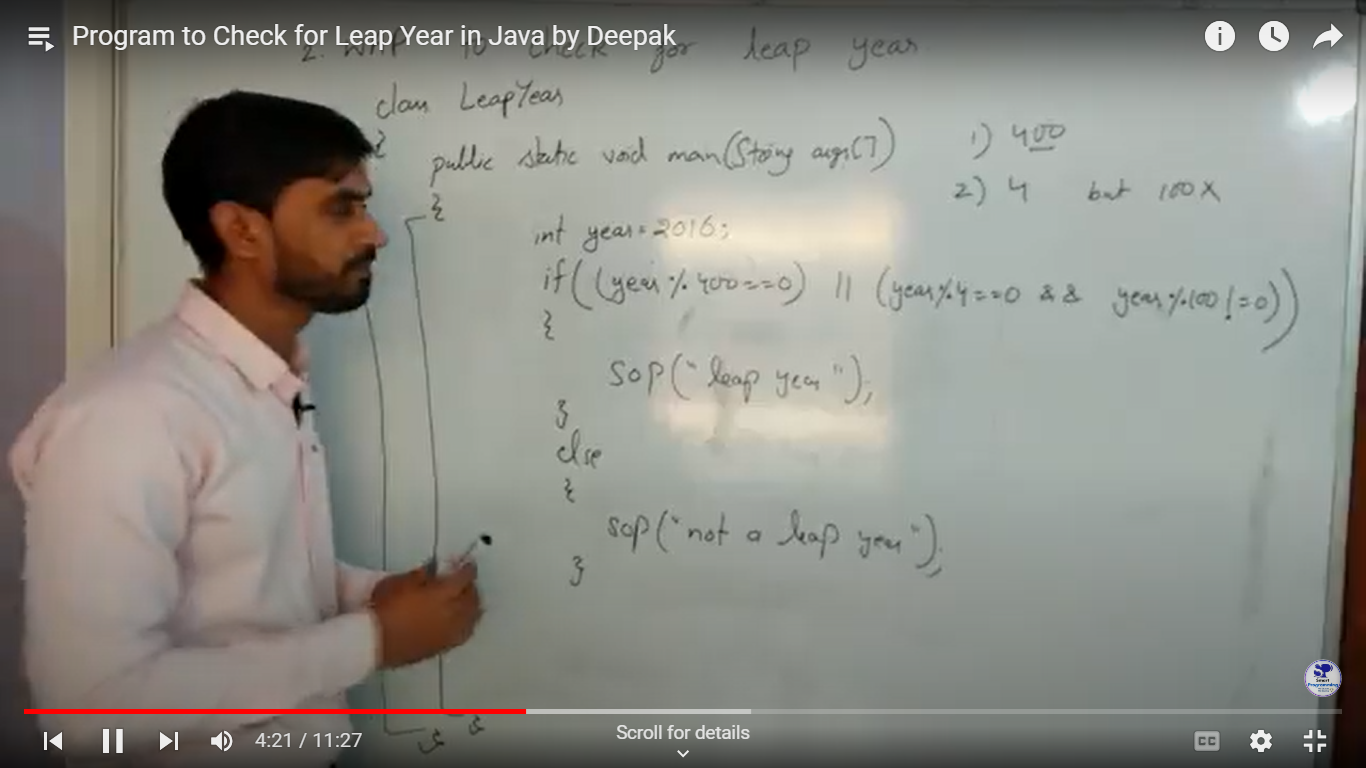 Program to Check for Leap Year in Java by Deepak
2. WAP to check for leap year
class LeapYear
{
public static void main(String args[])
{
1) 400
2) 4 but 100X
int year=2016;
if((year%400==0) || (year%4==0 && year%100!=0))
{
SOP("leap year");
}
else
{
sop("not a leap year");
}
}
}
Smart
Programming
4:21 / 11:27
Scroll for details
CC